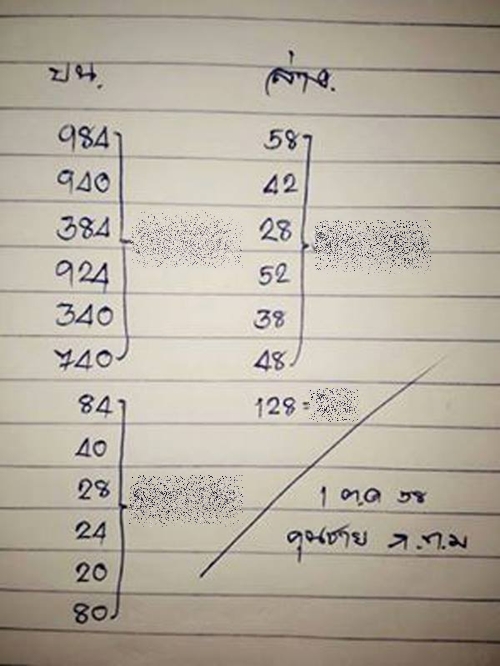 บน.
984
940
384
924
340
740
84
40
28
24
20
80
ล่าง.
58
42
28
52
38
48
128 =
1 ต.ค 58
คุณชาย ก.ท.ม